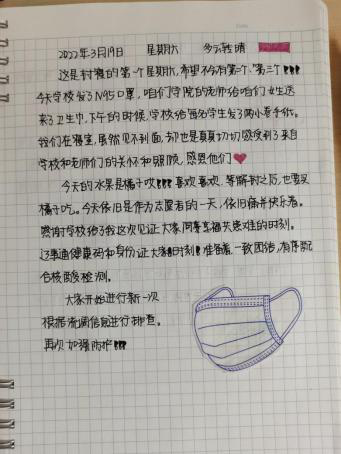 2022年3月19日 星期六 多云转晴
这是封寝的第一个星期六,希望不会有第二个、第三个!!!
今天学校发了N95口罩,咱们学院的老师给咱们女生送
来了卫生巾,下午的时候,学校给每名学生发了两小卷手纸。
我们在寝室,虽然见不到面,却也是真真切切感受到了来自
学校和老师们的关怀和照顾,感恩他们❤
今天的水果是橘子哎!!!喜欢喜欢,等解封之后,也要买
橘子吃。今天依旧是作为志愿者的一天,依旧痛并快乐着。
感谢学校给予我这次见证大家同事幸福共患难的时刻。
健康码和身份证大家时刻准备着,一致团结,有序配
合核酸检测。
大家开始进行新一次
根据流调信息进行排查。
再次加强防护!!!